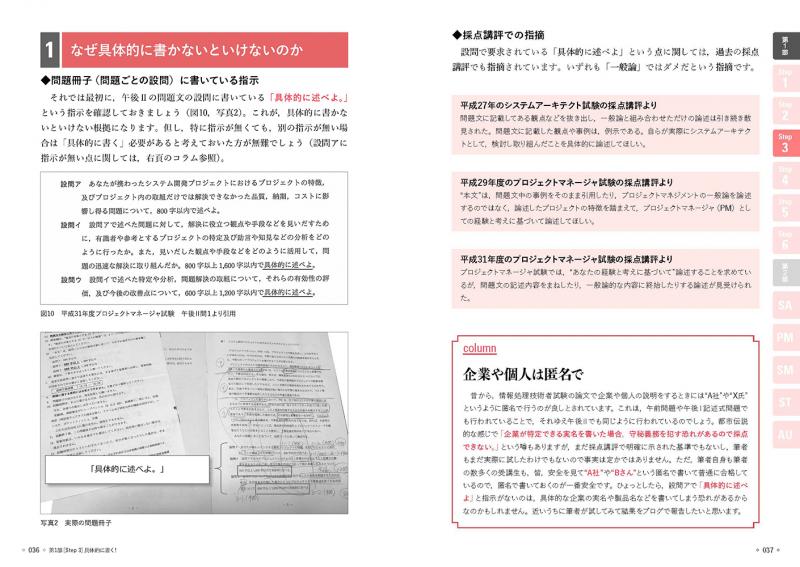 1 なぜ具体的に書かないといけないのか
◆問題冊子（問題ごとの設問）に書いている指示
それでは最初に，午後Ⅱの問題文の設問に書いている「具体的に述べよ。」
という指示を確認しておきましょう（図10，写真2）。これが，具体的に書かな
いといけない根拠になります。但し，特に指示が無くても，別の指示が無い場
合は「具体的に書く」必要があると考えておいた方が無難でしょう（設問アに
指示が無い点に関しては，右頁のコラム参照）。
設問ア あなたが携わったシステム開発プロジェクトにおけるプロジェクトの特徴，
及びプロジェクト内の取組だけでは解決できなかった品質，納期，コストに影
響し得る問題について，800字以内で述べよ。
設問イ 設問アで述べた問題に対して，解決に役立つ観点や手段などを見いだすため
に，有識者や参考とするプロジェクトの特定及び助言や知見などの分析をどの
ように行ったか。また，見いだした観点や手段などをどのように活用して，問
題の迅速な解決に取り組んだか。800字以上1,600字以内で具体的に述べよ。
設問ウ 設問イで述べた特定や分析，問題解決の取組について，それらの有効性の評
価，及び今後の改善点について，600字以上1,200字以内で具体的に述べよ。
図10 平成31年度プロジェクトマネージャ試験 午後Ⅱ問1より引用
「具体的に述べよ。」
写真2 実際の問題冊子
036 第1部 [Step 3] 具体的に書く!
◆採点講評での指摘
設問で要求されている「具体的に述べよ」という点に関しては，過去の採点
講評でも指摘されています。いずれも「一般論」ではダメだという指摘です。
平成27年のシステムアーキテクト試験の採点講評より
問題文に記載してある観点などを抜き出し，一般論と組み合わせただけの論述は引き続き散
見された。問題文に記載した観点や事例は，例示である。自らが実際にシステムアーキテク
トとして，検討し取り組んだことを具体的に論述してほしい。
平成29年度のプロジェクトマネージャ試験の採点講評より
“本文”は，問題文中の事例をそのまま引用したり，プロジェクトマネジメントの一般論を論述
するのではなく，論述したプロジェクトの特徴を踏まえて，プロジェクトマネージャ（PM）とし
ての経験と考えに基づいて論述してほしい。
平成31年度のプロジェクトマネージャ試験の採点講評より
プロジェクトマネージャ試験では，“あなたの経験と考えに基づいて”論述することを求めてい
るが，問題文の記述内容をまねしたり，一般論的な内容に終始したりする論述が見受けられ
た。
column
企業や個人は匿名で
昔から，情報処理技術者試験の論文で企業や個人の説明をするときには“A社”や“X氏”
というように匿名で行うのが良しとされています。これは，午前問題や午後Ⅰ記述式問題で
も行われていることで，それゆえ午後Ⅱでも同様に行われているのでしょう。都市伝説
的な感じで「企業が特定できる実名を書いた場合，守秘義務を犯す恐れがあるので採点
できない。」という噂もありますが，まだ採点講評で明確に示された基準でもないし，筆者
もまだ実際に試したわけでもないので事実は定かではありません。ただ，筆者自身も筆者
の数多くの受講生も，皆，安全を見て“A社”や“Bさん”という匿名で書いて普通に合格して
いるので，匿名で書いておくのが一番安全です。ひょっとしたら，設問アで「具体的に述
べよ」と指示がないのは，具体的な企業の実名や製品名などを書いてしまう恐れがあるから
なのかもしれません。近いうちに筆者が試してみて結果をブログで報告したいと思います。
037
第1部
Step 1
Step 2
Step 3
Step 4
Step 5
Step 6
第2部
SA
PM
SM
ST
AU